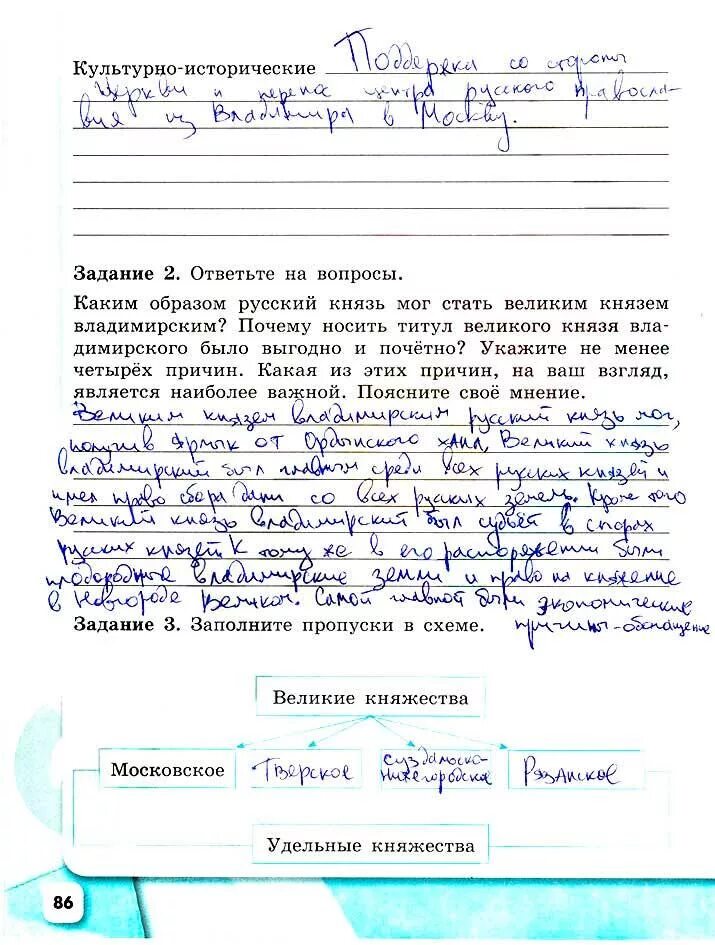 Культурно-исторические Поддержка со стороны
церкви и перенос центра русского правосла-
вия из Владимира в Москву.
Задание 2. Ответьте на вопросы.
Каким образом русский князь мог стать великим князем
владимирским? Почему носить титул великого князя вла-
димирского было выгодно и почётно? Укажите не менее
четырёх причин. Какая из этих причин, на ваш взгляд,
является наиболее важной. Поясните своё мнение.
Великим князем владимирским русский князь мог,
получив ярлык от Ордынского хана. Великий князь
владимирский был главным среди всех русских князей и
имел право сбора дани со всех русских земель. Кроме того
Великий князь владимирский был судьёй в спорах
русских князей. К тому же в его распоряжении были
плодородные владимирские земли и право на княжение
в Новгороде Великом. Самой главной были экономические
причины - обогащение
Задание 3. Заполните пропуски в схеме.
Великие княжества
Московское Тверское Суздальско-
Нижегородское Рязанское
Удельные княжества
86